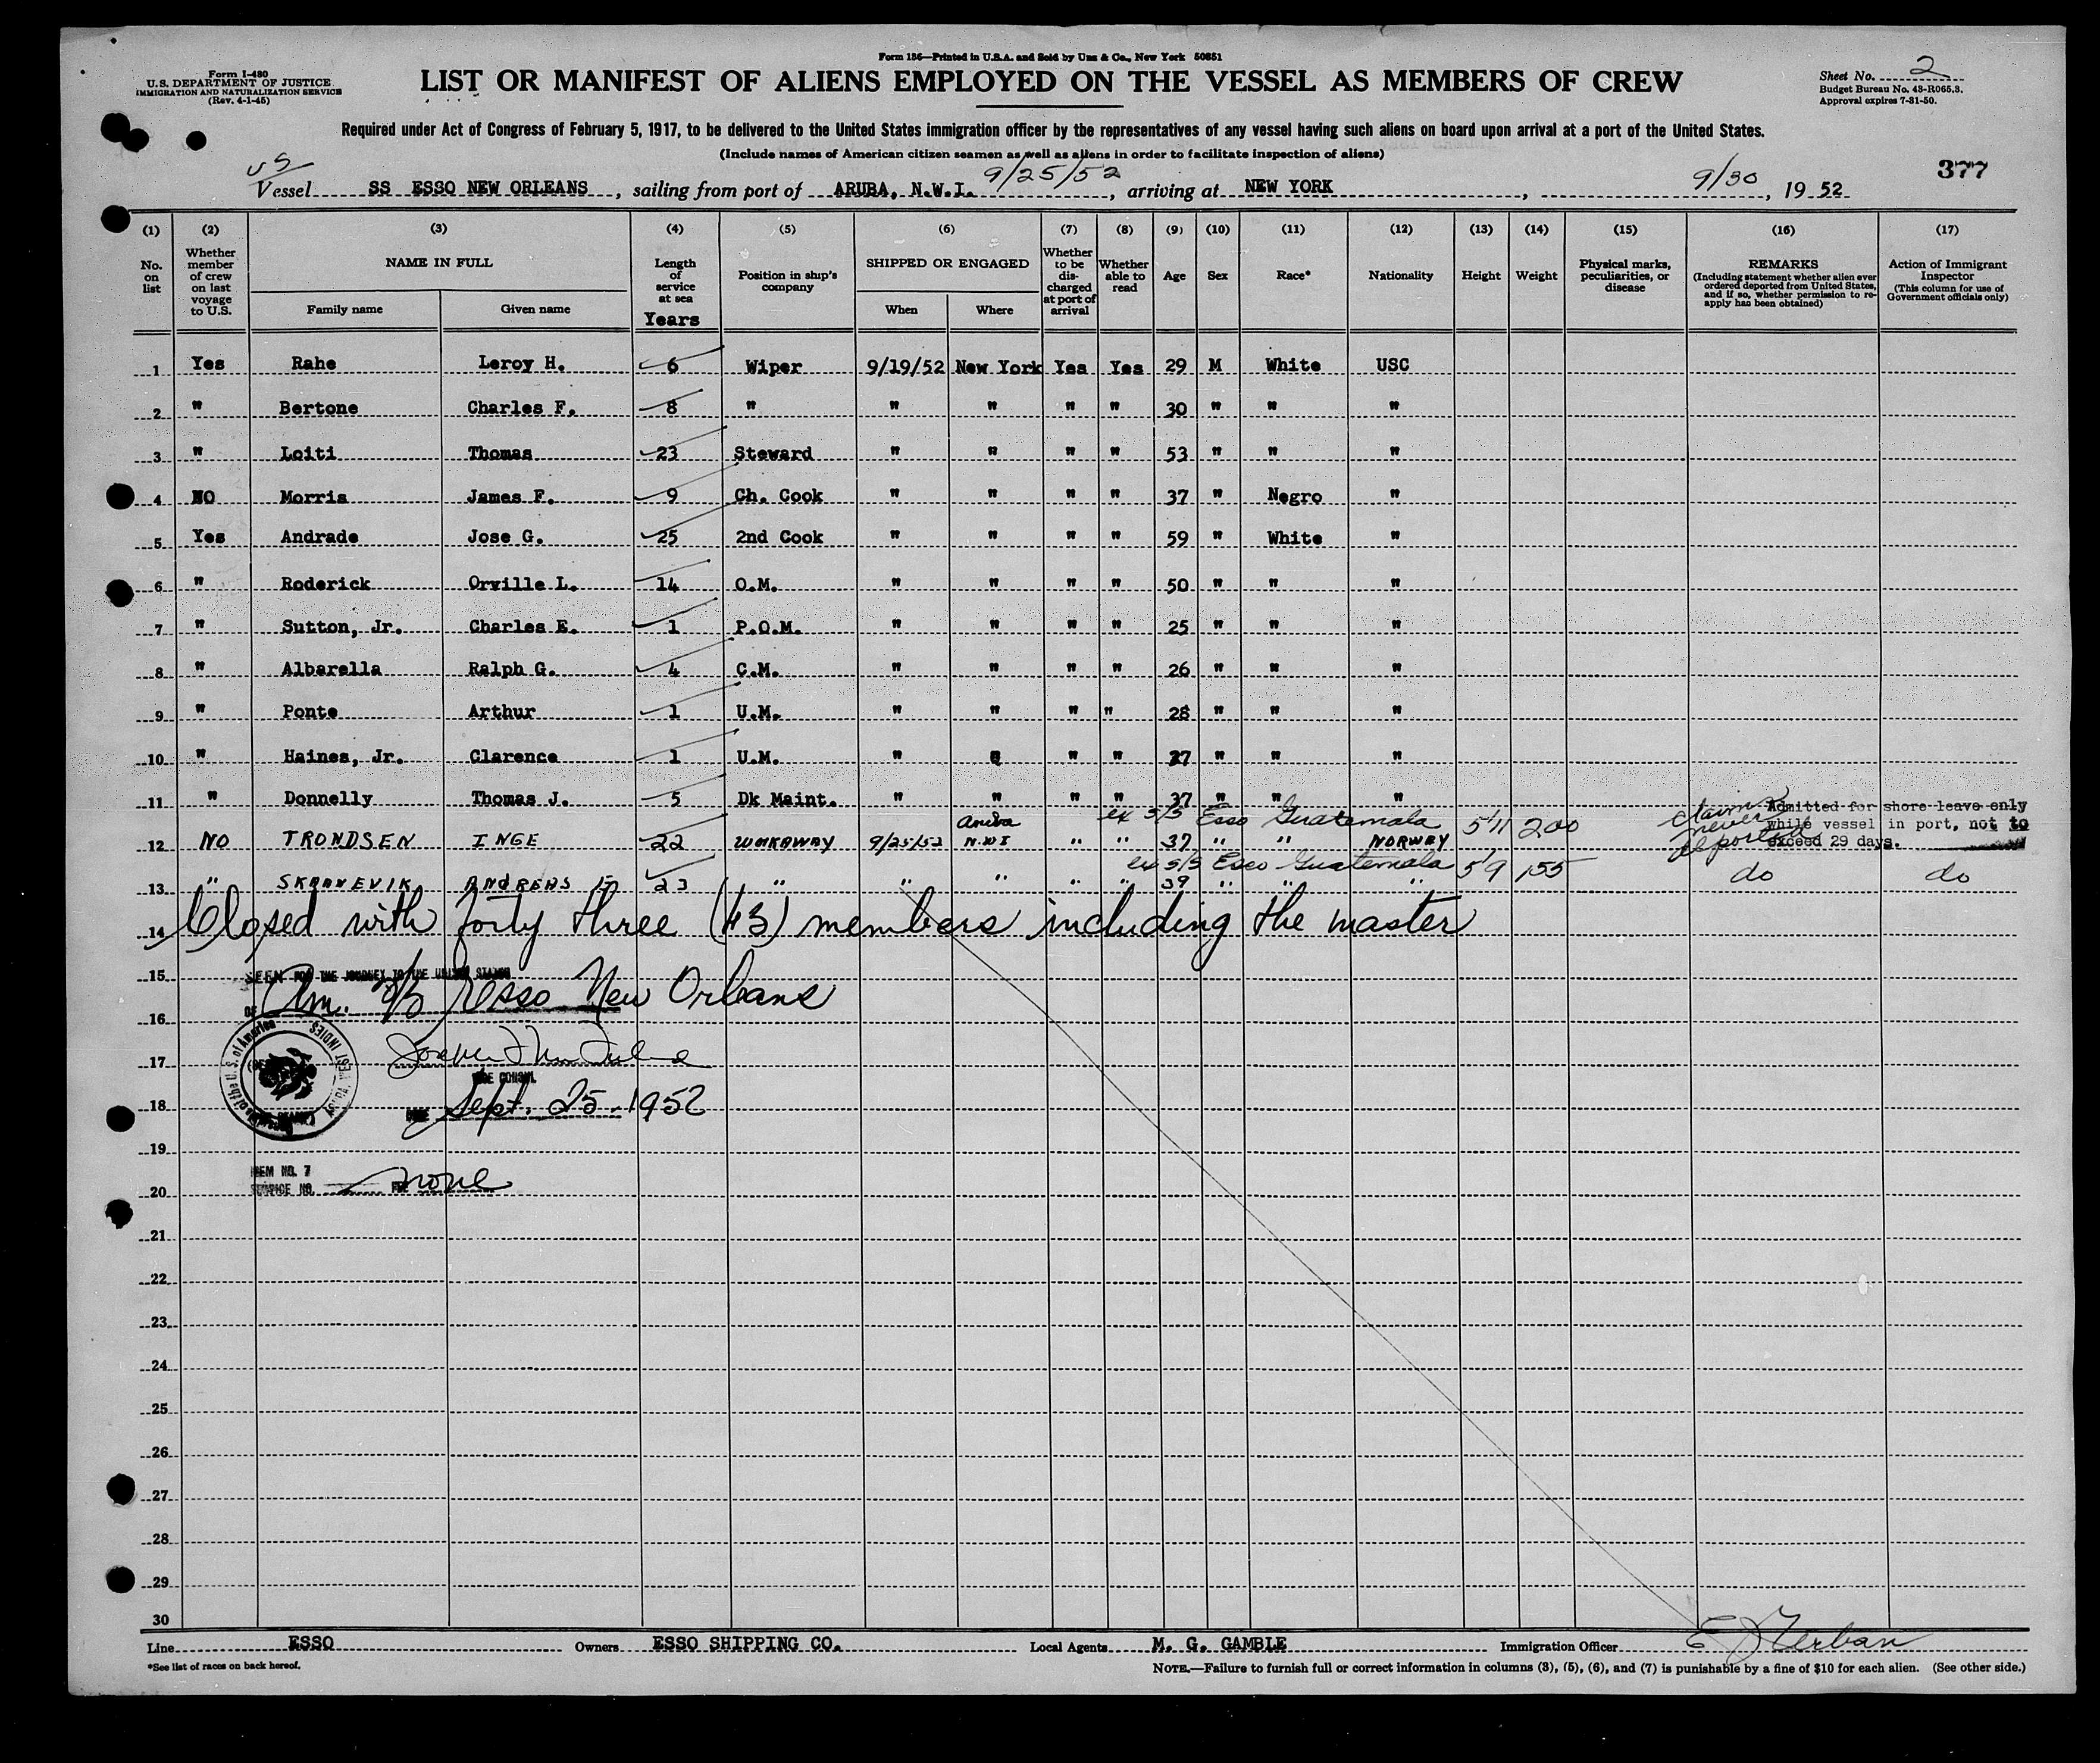 Form 136—Printed in U.S.A. and Sold by Unz & Co., New York 50851
Form I-480
U.S. DEPARTMENT OF JUSTICE
IMMIGRATION AND NATURALIZATION SERVICE
(Rev. 4-1-45)
LIST OR MANIFEST OF ALIENS EMPLOYED ON THE VESSEL AS MEMBERS OF CREW
Sheet No. 2
Budget Bureau No. 43-R065.3.
Approval expires 7-31-50.
Required under Act of Congress of February 5, 1917, to be delivered to the United States immigration officer by the representatives of any vessel having such aliens on board upon arrival at a port of the United States.
(Include names of American citizen seamen as well as aliens in order to facilitate inspection of aliens)
377
US
Vessel SS ESSO NEW ORLEANS, sailing from port of ARUBA, N.W.I. 9/25/52, arriving at NEW YORK, 9/30, 19 52
(1) No. on list
(2) Whether member of crew on last voyage to U.S.
(3) NAME IN FULL Family name Given name
(4) Length of service at sea Years
(5) Position in ship's company
(6) SHIPPED OR ENGAGED When Where
(7) Whether to be discharged at port of arrival
(8) Whether able to read
(9) Age
(10) Sex
(11) Race*
(12) Nationality
(13) Height
(14) Weight
(15) Physical marks, peculiarities, or disease
(16) REMARKS (Including statement whether alien ever ordered deported from United States, and if so, whether permission to re-apply has been obtained)
(17) Action of Immigrant Inspector (This column for use of Government officials only)
1 Yes Rahe Leroy H. 6 Wiper 9/19/52 New York Yes Yes 29 M White USC
2 " Bertone Charles F. 8 " " " " " 30 " " "
3 " Loiti Thomas 23 Steward " " " " 53 " " "
4 NO Morris James F. 9 Ch. Cook " " " " 37 " Negro "
5 Yes Andrade Jose G. 25 2nd Cook " " " " 59 " White "
6 " Roderick Orville L. 14 O.M. " " " " 50 " " "
7 " Sutton, Jr. Charles E. 1 P.O.M. " " " " 25 " " "
8 " Albarella Ralph G. 4 C.M. " " " " 26 " " "
9 " Ponte Arthur 1 U.M. " " " " 28 " " "
10 " Haines, Jr. Clarence 1 U.M. " " " " 27 " " "
11 " Donnelly Thomas J. 5 Dk Maint. " " " " 37 " " "
ex S/S Esso Guatemala
12 NO TRONDSEN INGE 22 WORKAWAY 9/25/52 Aruba N.W.I " " 37 " " NORWAY 5'11 200 claims never deported Admitted for shore leave only while vessel in port, not to exceed 29 days.
ex S/S Esso Guatemala
13 " SKAANEVIK ANDREAS E 23 " " " " " 39 " " " 5'9 155 do do
14 Closed with forty three (43) members including the master
15 SEEN FOR THE JOURNEY TO THE UNITED STATES
OF Am. S/S Esso New Orleans
16
17
VICE CONSUL
18 DATE Sept. 25-1952
19
ITEM NO. 7
20 SERVICE NO. FEE none
21
22
23
24
25
26
27
28
29
30
Line ESSO Owners ESSO SHIPPING CO. Local Agents M. G. GAMBLE Immigration Officer
*See list of races on back hereof.
NOTE.—Failure to furnish full or correct information in columns (3), (5), (6), and (7) is punishable by a fine of $10 for each alien. (See other side.)